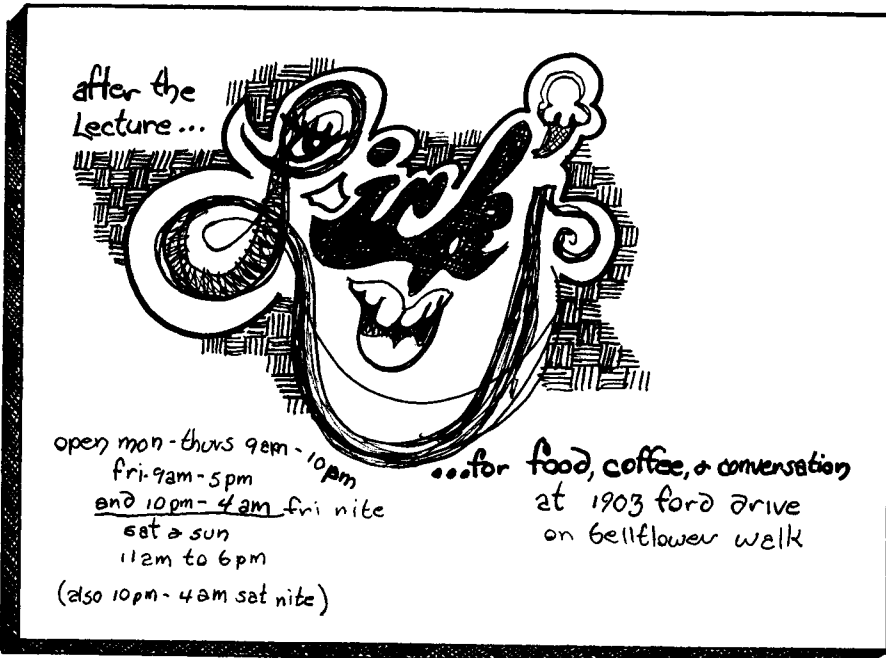 after the
Lecture...
open mon - thurs 9am - 10pm
fri - 9am - 5pm
and 10pm - 4am fri nite
sat & sun
11am to 6pm
(also 10pm - 4am sat nite)
...for food, coffee, & conversation
at 1903 ford drive
on bellflower walk